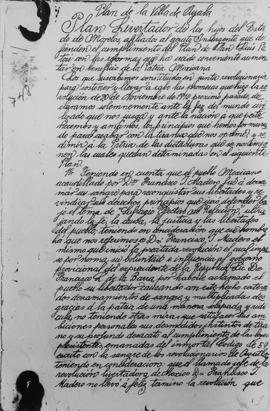 Plan de la Villa de Ayala
Plan Libertador de los hijos del Esta-
do de Morelos afiliados al Ejército Insurgente que de-
fienden el cumplimiento del Plan de San Luis Po-
tosí con las reformas que ha creido conveniente aumen-
tar en beneficio de la Patria Mexicana
Los que suscribimos constituidos en junta revolucionaria
para sostener y llevar a cabo las promesas que hizo la re-
volución de 20 de Noviembre de 1910 proximo pasado de-
claramos solemnemente ante la faz del mundo civi-
lizado que nos juzga y ante la nación a que perte-
necemos y amamos, los principios que hemos formula-
do para acabar con la tirania que nos oprime y re-
dimir a la Patria de las dictaduras que se nos imponen
las cuales quedan determinadas en el siguiente
Plan
1º Teniendo en cuenta que el pueblo Mexicano
acaudillado por Dn Francisco I. Madero fué a derra-
mar su sangre para reconquistar sus libertades y rei-
vindicar sus derechos
lema de "Sufragio Efectivo no Reelección", ultra-
jando la fé, la causa, la justicia y las libertades
del pueblo; teniendo en consideración que ese hombre a
que nos referimos es Dn Francisco I. Madero el
mismo que inició la precitada revolución el cual impu-
so por norma su voluntad e influencia al gobierno
provisional del expresidente de la República Lic
Francisco L. de la Barra
su libertador causando con este hecho reitera-
dos derramamientos de sangre y multiplicadas des-
gracias a la patria de una manera solapada y ridi-
cula, no teniendo otras miras que satisfacer sus am-
biciones personales sus desmedidos instintos de tira-
no y su profundo desacato al cumplimiento de las leyes
preexistentes, emanadas del inmortal Código de 57
escrito con la sangre de los revolucionarios de Ayutla
teniendo en consideración: que el llamado jefe de la
revolución libertadora de Mexico Dn Francisco I.
Madero no llevó a feliz termino la revolución que